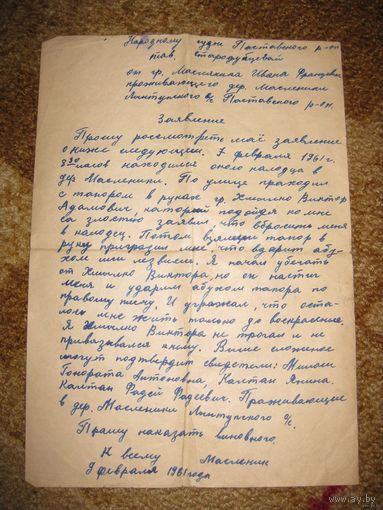 Народному судье Поставского р-on
тов. Стародубцевой
от гр. Масленика Ивана Францев.
проживающего дер. Масленики
Лынтупского с/с Поставского р-on.
Заявление
Прошу россмотреть маё заявление
о ниже следующем. 7 февраля 1961 г.
8 30 часов находился около калодца в
дер. Масленики. По улице праходил
с топором в руках гр. Хмылко Виктор
Адамович каторый подойдя ко мне
са злостью заявил, что вбросит меня
в калодец. Потом взявши топор в
руку пригразил мне, что вдарит абу-
хом или лезвием. Я начал убегать
от Хмылко Виктора, но он настиг
меня и ударил абухом топора по
правому плечу. И угражал, что оста-
лось мне жить только до воскресения.
Я Хмылко Виктора не трогал и не
привязывался к нему. Выше сложеное
могут подтвердит сведетели:
Гонората Антоновна, Калтан Янина,
Калтан Фадей Фадеевич. Праживающие
в дер. Масленики Лынтупского с/с.
Прашу наказать виновного.
К всему Масленик
9 февраля 1961 года
ay.by